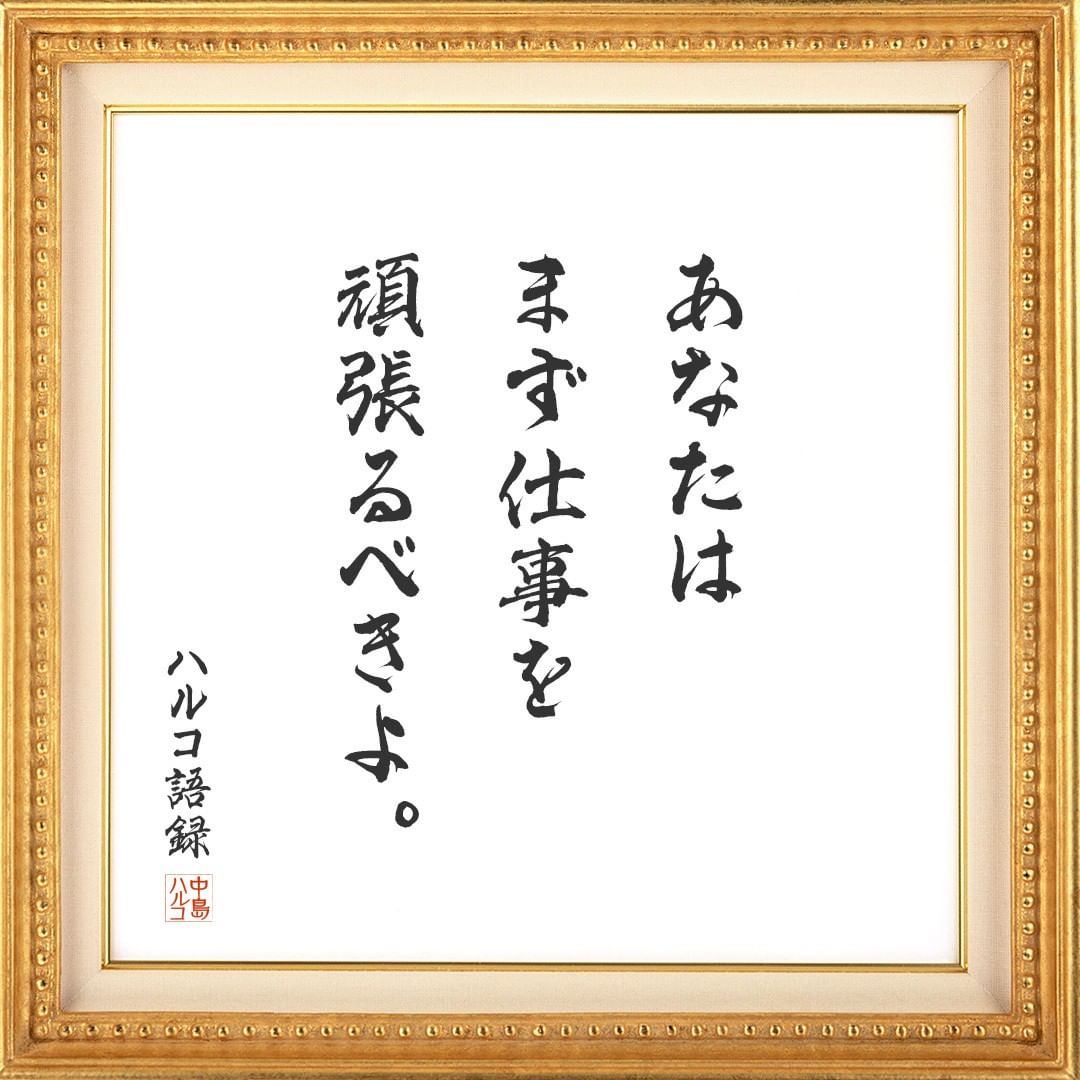 あなたは
まず仕事を
頑張るべきよ。
ハルコ語録
中島
ハルコ